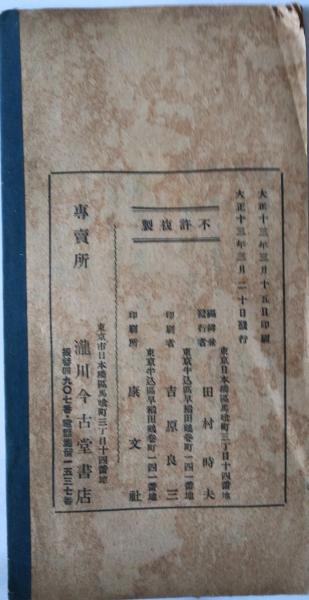 大正十三年三月十五日印刷
大正十三年三月二十日發行
不許複製
編輯兼
發行者
東京日本橋區馬喰町三丁目十四番地
田村時夫
印刷者
東京牛込區早稲田鶴卷町一四一番地
吉原良三
印刷所
東京牛込區早稲田鶴卷町一四一番地
康文社
專賣所
東京市日本橋區馬喰町三丁目十四番地
瀧川今古堂書店
振替四九〇七番・電話浪花一五三七番